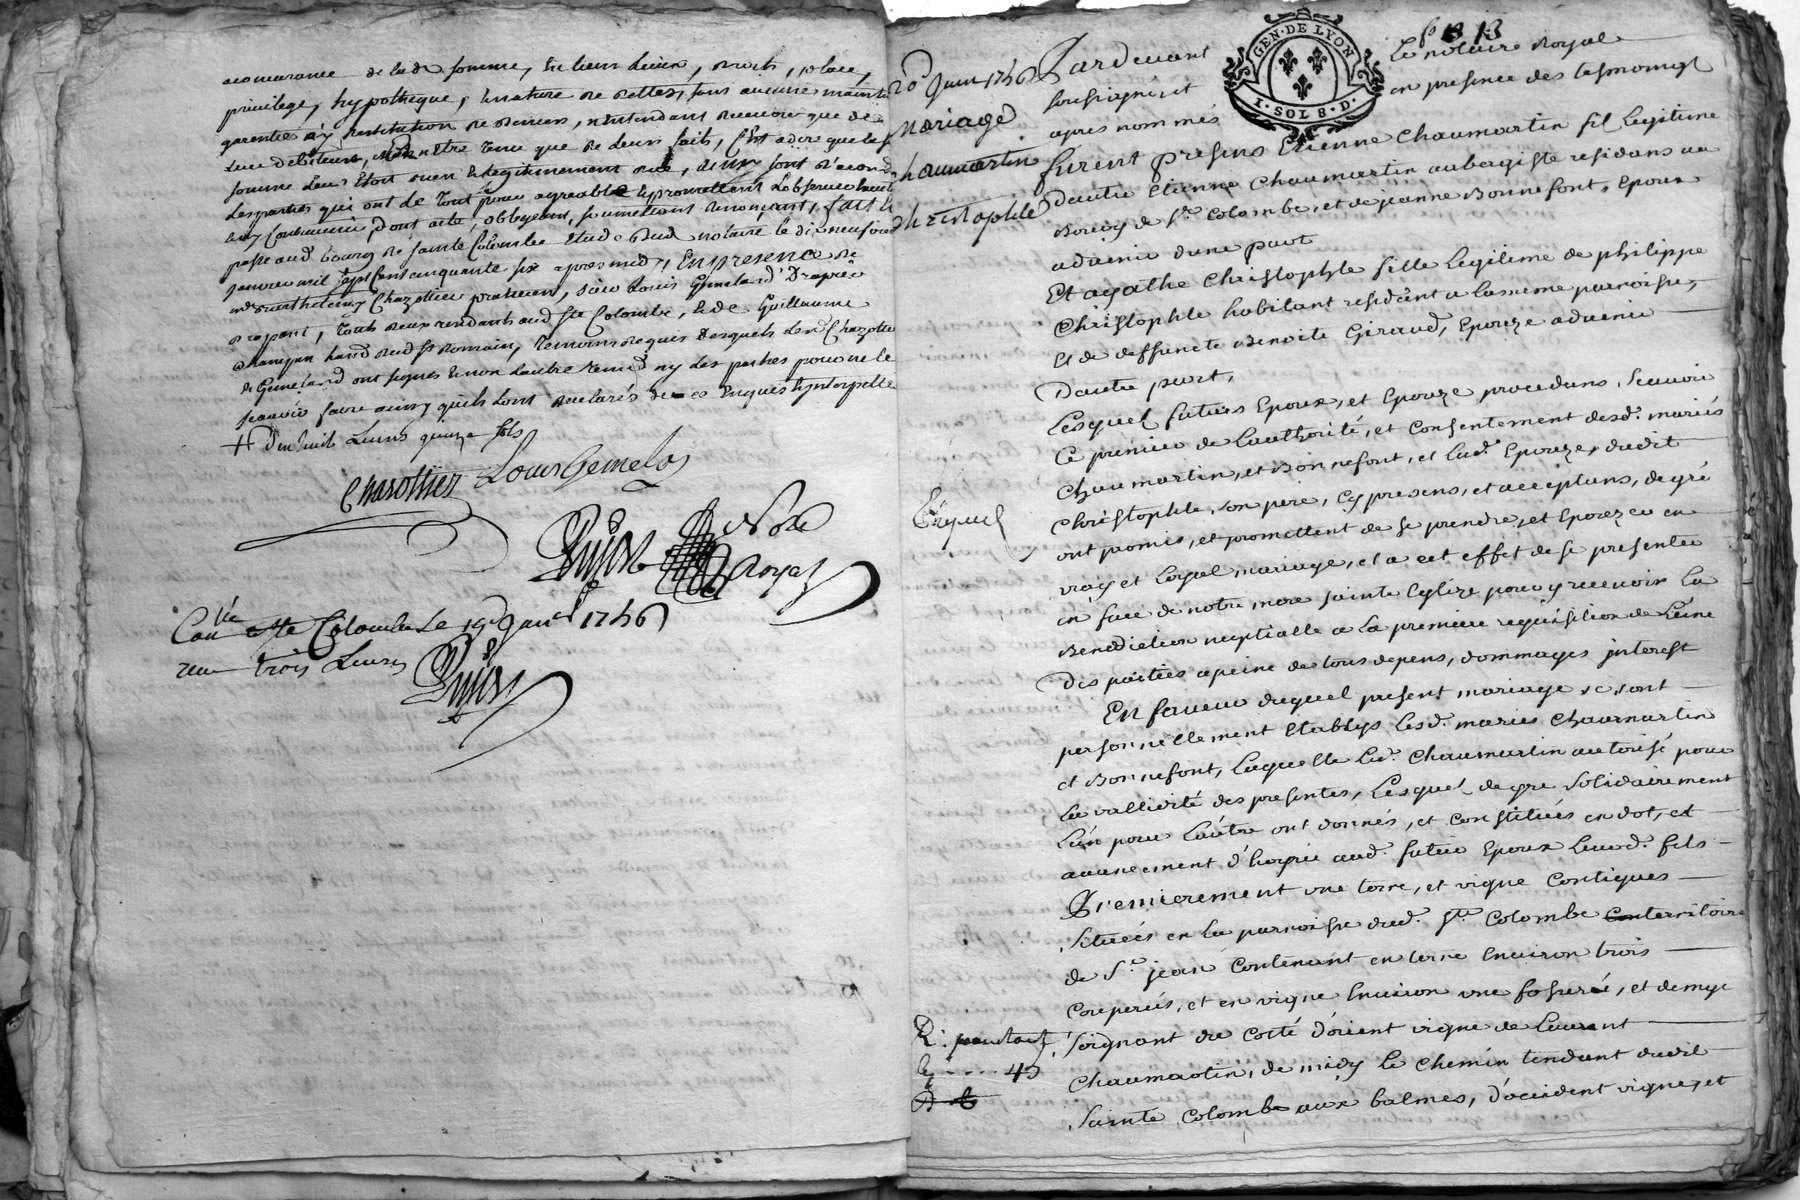 de lad. somme, en leurs lieux, droits, place,
privilege, hypotheque, nature de dettes, sans aucune
garentie ny restitution de deniers, n'entendant que de
leur debiteur, estre tenu que de leurs faits, C'est adire que lad.
somme leur etoit bien legitimement due,
les parties qui ont de tout pour agreable promettent L'observer
dont acte, obligeant, soumettant renonçant, fait
passé aud. bourg de sainte Colombe Etude dud. notaire le dix neuf
janvier mil sept Cent cinquante six apres midy, En presence de
Chazottier praticien, sieur Louis Gemeland
tous deux residants aud. Ste Colombe, et de Guillaume
hand. dud. St Romain, Temoins requis Lesquels Chazottier
& Gemeland ont signés et non L'autre temoin ny Les parties pour ne le
scavoir faire ainsy qu'ils L'ont declarés de ce Enquis & Interpellé
Livres quinze sols
Chasottier Louis Gemelas
Note
Royal
Ste Colombe le 19e janv. 1756
trois Livres
13
20e Janv. 1756
Mariage
Chaumartin
Christophle
Pardevant Le notaire Royal
soussigné, et en presence des tesmoings
apres nommés
furent presens Etienne Chaumartin fil Legitime
Dautre Etienne Chaumartin aubergiste residans au
Bourg de Ste Colombe, et de jeanne Bonnefont, Epoux
advenir dune part
Et agathe Christophle fille Legitime de philippe
Christophle habitant residant a la meme parroisse,
et de deffuncte Benoite Giraud, Epouze advenir
Dautre part,
Lesquel futurs Epoux, et Epouze procedans, scavoir
Ce premier de Lauthorité, et Consentement desd. mariés
Chaumartin, et Bonnefont, et lad. Epouze, dudit
Christophle, son pere, Cy presens, et acceptans, de gré
ont promis, et promettent de se prendre, et Epouzer en
vray et Loyal mariage, et a cet effet de se presenter
en face de notre mere sainte Eglize pour y recevoir La
Benediction nuptialle a La premiere requisition de Lune
Des parties a peine de tous depens, dommages jnterest
En faveur duquel present mariage se sont
personnellement Etablys Lesd. mariés Chaumartin
et Bonnefont, Laquelle Led. Chaumartin autorisé pour
La vallidité des presentes, Lesquel de gré solidairement
L'un pour L'autre ont donnés, et Constitués en dot, et
avancement d'hoyrie aud. futur Epoux Leurd. fils
Premierement une terre, et vigne Contigues
Situées en La parroisse dud. Ste Colombe territoire
de St jean Contenant en terre Environ trois
Couperées, et en vigne Environ une fosserée, et demye
joignant du Costé d'orient vigne de Laurent
Chaumartin, de midy Le Chemin tendant dudit
Sainte Colombe aux balmes, d'occident vigne, et
43
GEN. DE LYON
1. SOL 8. D.